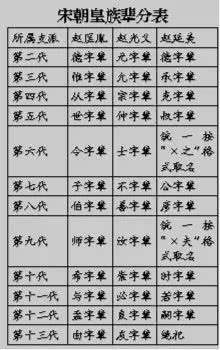 宋朝皇族辈分表
所属支派 赵匡胤 赵光义 赵廷美
第二代 德字辈 元字辈 德字辈
第三代 惟字辈 允字辈 承字辈
第四代 从字辈 宗字辈 克字辈
第五代 世字辈 仲字辈 叔字辈
第六代 令字辈 士字辈 统一按“×之”格式取名
第七代 子字辈 不字辈 公字辈
第八代 伯字辈 善字辈 彦字辈
第九代 师字辈 汝字辈 统一按“×夫”格式取名
第十代 希字辈 崇字辈 时字辈
第十一代 与字辈 必字辈 若字辈
第十二代 孟字辈 良字辈 嗣字辈
第十三代 由字辈 友字辈 绝祀